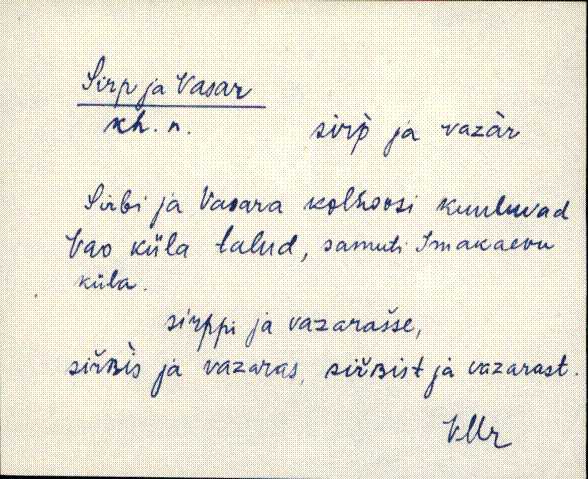 Sirp ja Vasar
kh. n.
sirp̀ ja vazàr
Sirbi ja Vasara kolhoosi kuuluvad
Vao küla talud, samuti Imakaevu
küla.
sìrppi ja vazarašse,
siřʙìs ja vazaras, siřʙist ja vazarast.
VMr